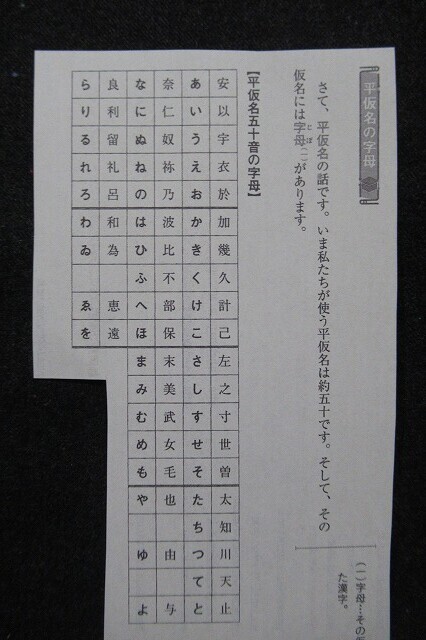 平仮名の字母
さて、平仮名の話です。いま私たちが使う平仮名は約五十です。そして、その
仮名には字母(一)があります。
【平仮名五十音の字母】
安以宇衣於加幾久計己左之寸世曽太知川天止
あいうえおかきくけこさしすせそたちつてと
奈仁奴祢乃波比不部保末美武女毛也 由 与
なにぬねのはひふへほまみむめもや ゆ よ
良利留礼呂和為 恵遠
らりるれろわゐ ゑを
(一)字母…その
た漢字。